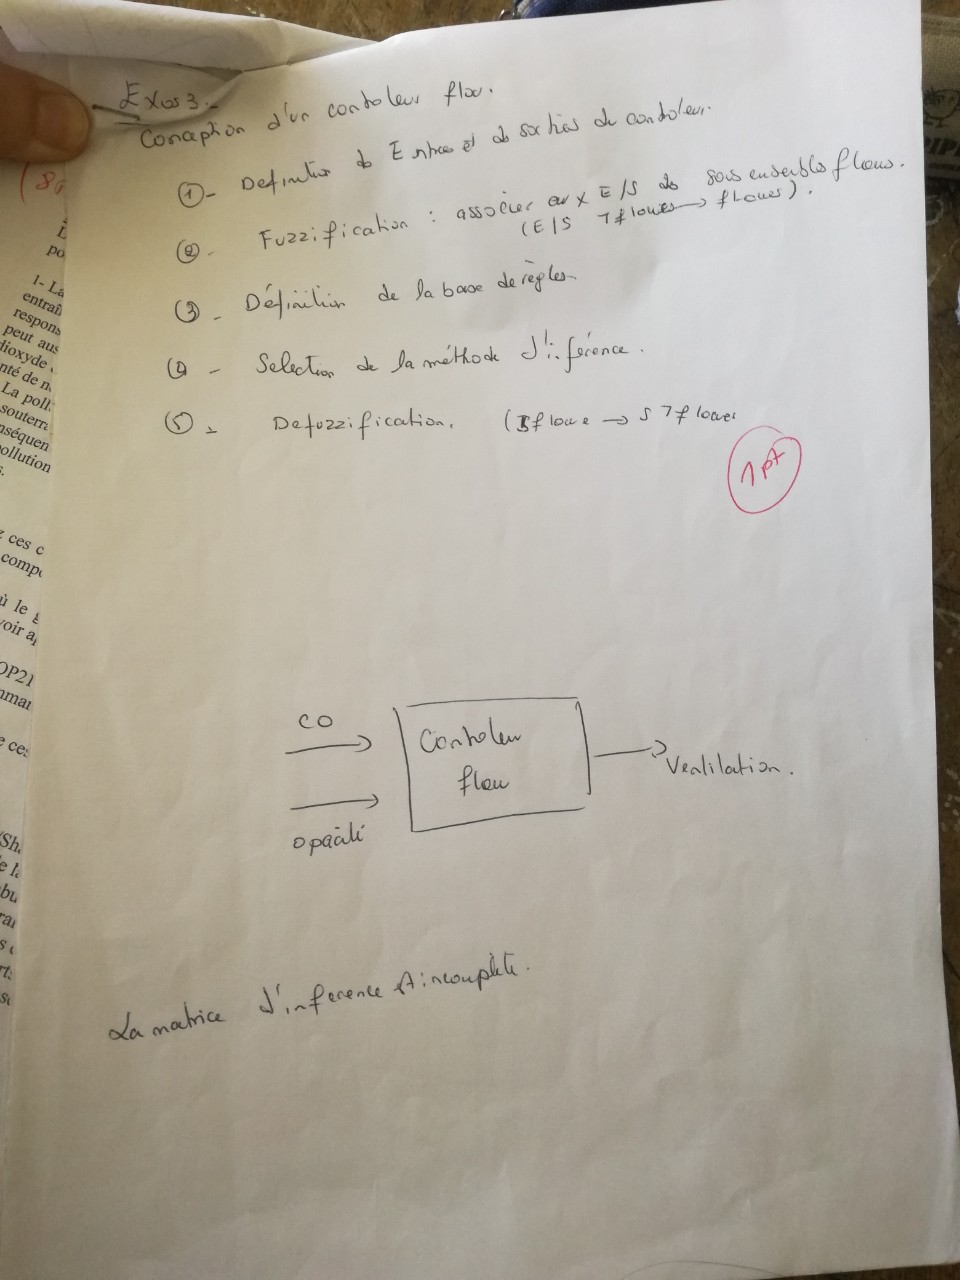 Exos 3.-
Conception d'un contoleur flou.
①- Definition des Entrees et des sorties du contoleur.
②- Fuzzification : associer aux E/S des sous ensembles flous.
(E/S 7flowes → flowes).
③- Définition de la base de règles.
④- Selection de la méthode d'inférence.
⑤- Defuzzification. (S flowe → S 7flowes
1pt
CO
Contoleur
flou
Ventilation.
opacité
La matrice d'inference est incomplète.
(80
po
1- La
entraî
respons
peut aus
dioxyde
nté de n
La poll
souterra
nséquen
pollution
s.
z ces c
compo
ù le g
voir a
OP21
mmar
e ces
(Sh
e la
bu
rai
s c
rt:
se